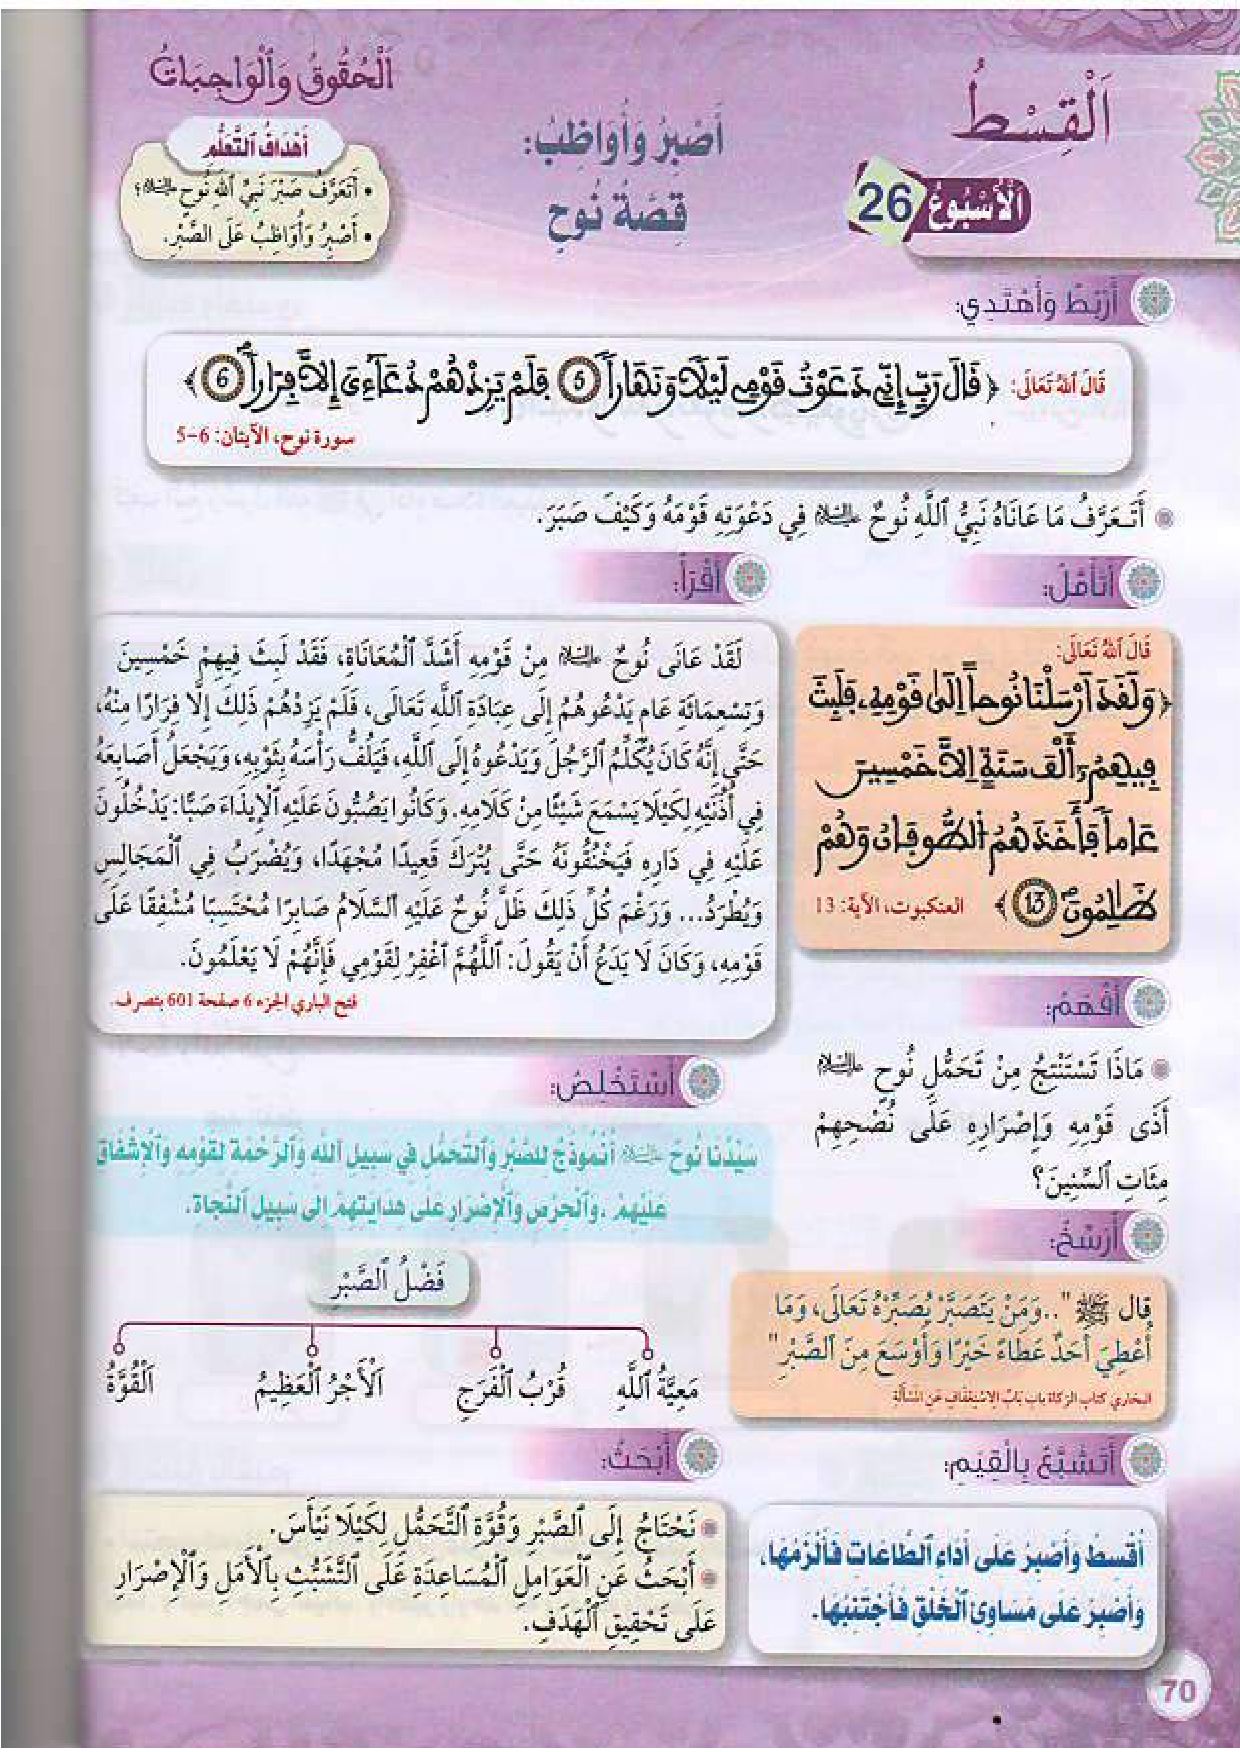 اَلْقِسْطُ
اَلْأُسْبُوعُ 26
أَصْبِرُ وَأُوَاظِبُ:
قِصَّةُ نُوحٍ
اَلْحُقُوقُ وَالْوَاجِبَاتُ
أَهْدَافُ التَّعَلُّمِ
• أَتَعَرَّفُ صَبْرَ نَبِيِّ اللَّهِ نُوحٍ عليه السلام؛
• أَصْبِرُ وَأُوَاظِبُ عَلَى الصَّبْرِ.
أَرْبِطُ وَأَهْتَدِي:
قَالَ اللَّهُ تَعَالَى: ﴿ قَالَ رَبِّ إِنِّي دَعَوْتُ قَوْمِي لَيْلًا وَنَهَارًا 5 فَلَمْ يَزِدْهُمْ دُعَاءِيَ إِلَّا فِرَارًا 6 ﴾
سورة نوح، الآيتان: 6-5
أَتَعَرَّفُ مَا عَانَاهُ نَبِيُّ ٱللَّهِ نُوحٌ عليه السلام فِي دَعْوَتِهِ قَوْمَهُ وَكَيْفَ صَبَرَ.
أَتَأَمَّلُ:
قَالَ اللَّهُ تَعَالَى:
﴿ وَلَقَدَ اَرْسَلْنَا نُوحاً اِلَىٰ قَوْمِهِ، فَلَبِثَ
فِيهِمُ أَلْفَ سَنَةٍ اِلَّا خَمْسِينَ
عَاماً فَأَخَذَهُمُ الطُّوفَانُ وَهُمْ
ظَالِمُونَ 13 ﴾ العنكبوت، الآية: 13
أَقْرَأُ:
لَقَدْ عَانَى نُوحٌ عليه السلام مِنْ قَوْمِهِ أَشَدَّ ٱلْمُعَانَاةِ، فَقَدْ لَبِثَ فِيهِمْ خَمْسِينَ
وَتِسْعِمِائَةِ عَامٍ يَدْعُوهُمْ إِلَى عِبَادَةِ ٱللَّهِ تَعَالَى، فَلَمْ يَزِدْهُمْ ذَلِكَ إِلَّا فِرَارًا مِنْهُ،
حَتَّى إِنَّهُ كَانَ يُكَلِّمُ ٱلرَّجُلَ وَيَدْعُوهُ إِلَى ٱللَّهِ، فَيَلُفُّ رَأْسَهُ بِثَوْبِهِ، وَيَجْعَلُ أَصَابِعَهُ
فِي أُذُنَيْهِ لِكَيْلَا يَسْمَعَ شَيْئًا مِنْ كَلَامِهِ. وَكَانُوا يَصُبُّونَ عَلَيْهِ ٱلْإِيذَاءَ صَبًّا: يَدْخُلُونَ
عَلَيْهِ فِي دَارِهِ فَيَخْنُقُونَهُ حَتَّى يُتْرَكَ قَعِيدًا مُجْهَدًا، وَيُضْرَبُ فِي ٱلْمَجَالِسِ
وَيُطْرَدُ... وَرَغْمَ كُلِّ ذَلِكَ ظَلَّ نُوحٌ عَلَيْهِ ٱلسَّلَامُ صَابِرًا مُحْتَسِبًا مُشْفِقًا عَلَى
قَوْمِهِ، وَكَانَ لَا يَدَعُ أَنْ يَقُولَ: ٱللَّهُمَّ ٱغْفِرْ لِقَوْمِي فَإِنَّهُمْ لَا يَعْلَمُونَ.
فتح الباري الجزء 6 صفحة 601 بتصرف.
أَفْهَمُ:
مَاذَا تَسْتَنْتِجُ مِنْ تَحَمُّلِ نُوحٍ عليه السلام
أَذَى قَوْمِهِ وَإِصْرَارِهِ عَلَى نُصْحِهِمْ
مِئَاتِ ٱلسِّنِينَ؟
أَسْتَخْلِصُ:
سَيِّدُنَا نُوحٌ عليه السلام أُنْمُوذَجٌ لِلصَّبْرِ وَٱلتَّحَمُّلِ فِي سَبِيلِ ٱللَّهِ وَٱلرَّحْمَةِ لِقَوْمِهِ وَٱلْإِشْفَاقِ
عَلَيْهِمْ. وَٱلْحِرْصِ وَٱلْإِصْرَارِ عَلَى هِدَايَتِهِمْ إِلَى سَبِيلِ ٱلنَّجَاةِ.
فَضْلُ ٱلصَّبْرِ
مَعِيَّةُ ٱللَّهِ
قُرْبُ ٱلْفَرَجِ
اَلْأَجْرُ ٱلْعَظِيمُ
اَلْقُوَّةُ
أُرَسِّخُ:
قال ﷺ "..وَمَنْ يَتَصَبَّرْ يُصَبِّرْهُ تَعَالَى، وَمَا
أُعْطِيَ أَحَدٌ عَطَاءً خَيْرًا وَأَوْسَعَ مِنَ ٱلصَّبْرِ"
البخاري كتاب الزكاة باب بَابُ الِاسْتِعْفَافِ عَنِ المَسْأَلَةِ
أَتَشَبَّعُ بِالْقِيَمِ:
أُقْسِطُ وَأَصْبِرُ عَلَى أَدَاءِ ٱلطَّاعَاتِ فَأَلْزَمُهَا،
وَأَصْبِرُ عَلَى مَسَاوِئِ ٱلْخُلُقِ فَأَجْتَنِبُهَا.
أَبْحَثُ:
نَحْتَاجُ إِلَى ٱلصَّبْرِ وَقُوَّةِ ٱلتَّحَمُّلِ لِكَيْلَا نَيْأَسَ.
أَبْحَثُ عَنِ ٱلْعَوَامِلِ ٱلْمُسَاعِدَةِ عَلَى ٱلتَّشَبُّثِ بِٱلْأَمَلِ وَٱلْإِصْرَارِ
عَلَى تَحْقِيقِ ٱلْهَدَفِ.
70